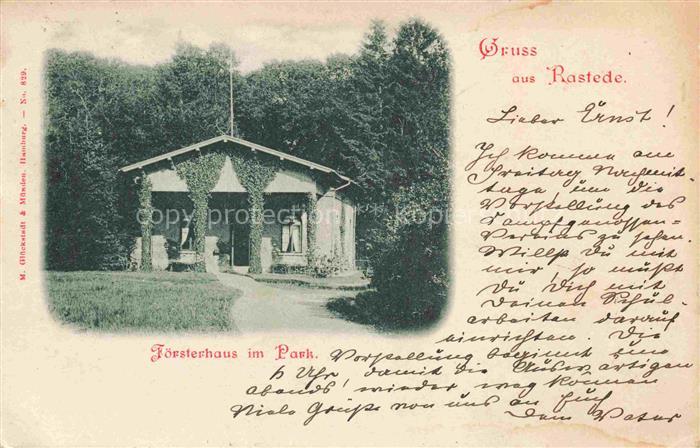 Gruss
aus Rastede.
M. Glückstadt & Münden, Hamburg. — No. 829.
Lieber Ernst!
Ich komme am
Freitag Nachmit-
tage, um die
Vorstellung des
Kampfgenossen-
Vereins zu sehen.
Willst Du mit
mir, so mußt
Du Dich mit
Deinen Schul-
arbeiten darauf
einrichten. Die
Försterhaus im Park.
Vorstellung beginnt um
6 Uhr damit die Auswärtigen
abends wieder weg kommen
Viele Grüße von uns an Euch
Dein Vater
copyright